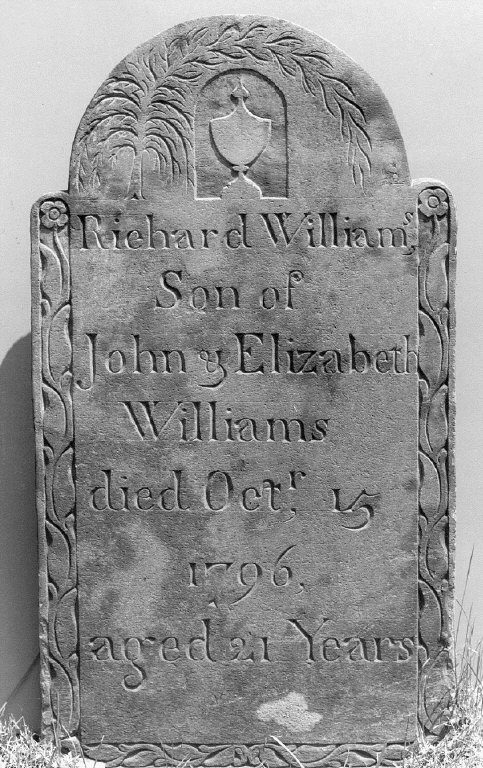 Richard Williams,
Son of
John & Elizabeth
Williams
died Octr, 15
1796,
aged 21 Years